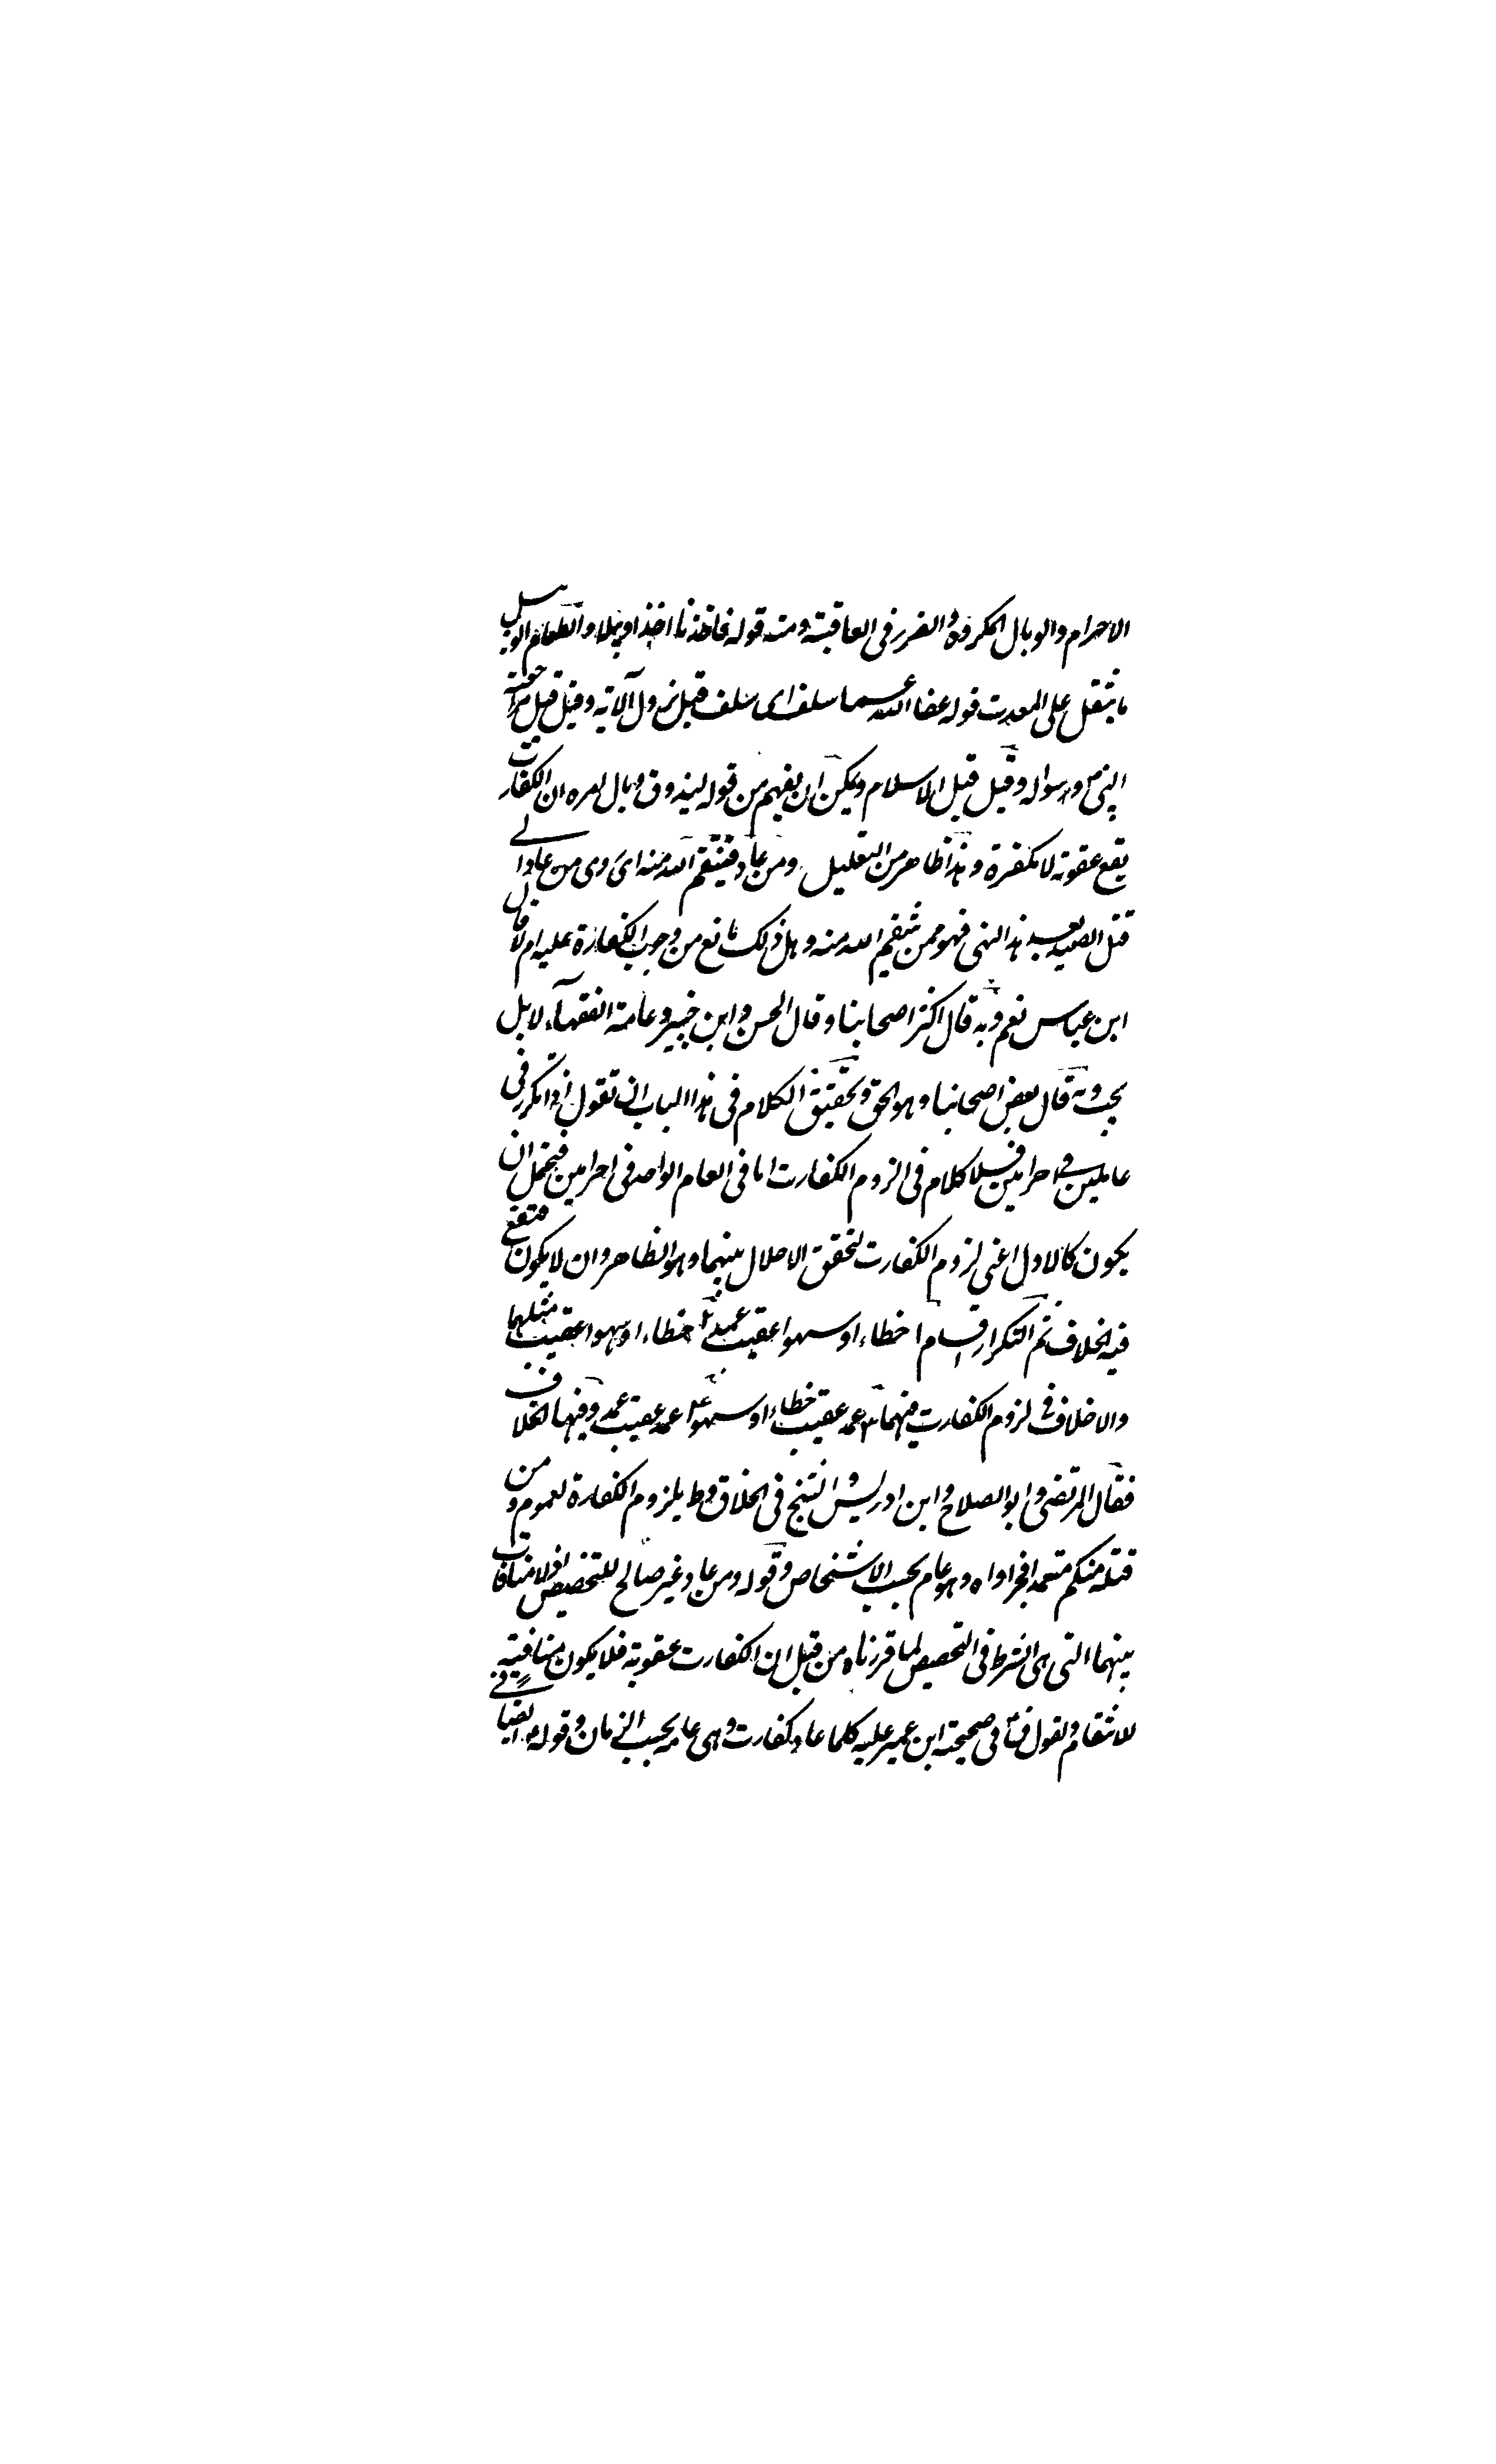 الاحرام والوبال المكروه والضرر فى العاقبة ومنه قوله فاخذناه اخذا وبيلا والطعام الوبيل
ما يثقل على المعدت قوله عفا الله عما سلف اى سلف قبل نزول الآية وقيل قبل مراجعة
النبى ص وسواله وقيل قبل الاسلام ويمكن ان يفهم من قوله ليذوق وبال امره ان الكفارت
يقع عقوبة لا مكفرة وهذا ظاهر من التعليل ومن عاد فينتقم الله منه اى ومن عاد الى
قتل الصيد بعد هذا النهى فهو ممن ينتقم الله منه وهل ذلك مانع من وجوب الكفارة عليه ام لا قال
ابن عباس نعم وبه قال اكثر اصحابنا وقال الحسن وابن جبير وعامة الفقهآء لا بل
يجب وبه قال بعض اصحابنا وهو الحق وتحقيق الكلام فى هذا الباب ان تقول اذا تكرر فى
عامين فى احرامين فلا كلام فى الزوم الكفارت اما فى العام الواحد فى احرامين فيحتمل ان
يكون كالاول اعنى لزوم الكفارت لتحقق الاحلال بينهما وهو الظاهر وان لا يكون فيقع
فيه الخلاف ثم التكرار اقسام ا خطاء او سهوا عقيب عمد خطاء او سهوا عقيب مثلهما
والاخلاف فى لزوم الكفارت فيهما ٣ عمد عقيب خطاء او سهو عمد عقيب عمد وفيها الخلاف
فقال المرتضى وابو الصلاح وابن ادريس والشيخ فى الخلاق وط بلزوم الكفارة لعموم ومن
قتله منكم متعمدا فجزاواه وهو عام بحسب الاشخاص وقوله ومن عاد غير صالح للتخصيص اذ لا منافات
بينهما التى هى الشرط فى التخصيص لما قررناه من قبل ان الكفارت عقوبة فلا يكون منافية
للانتقام ولقول ق س فى صحيحة ابن عمير عليه كلما عاد كفارت وهى عام بحسب الزمان وقوله م ايضا فى